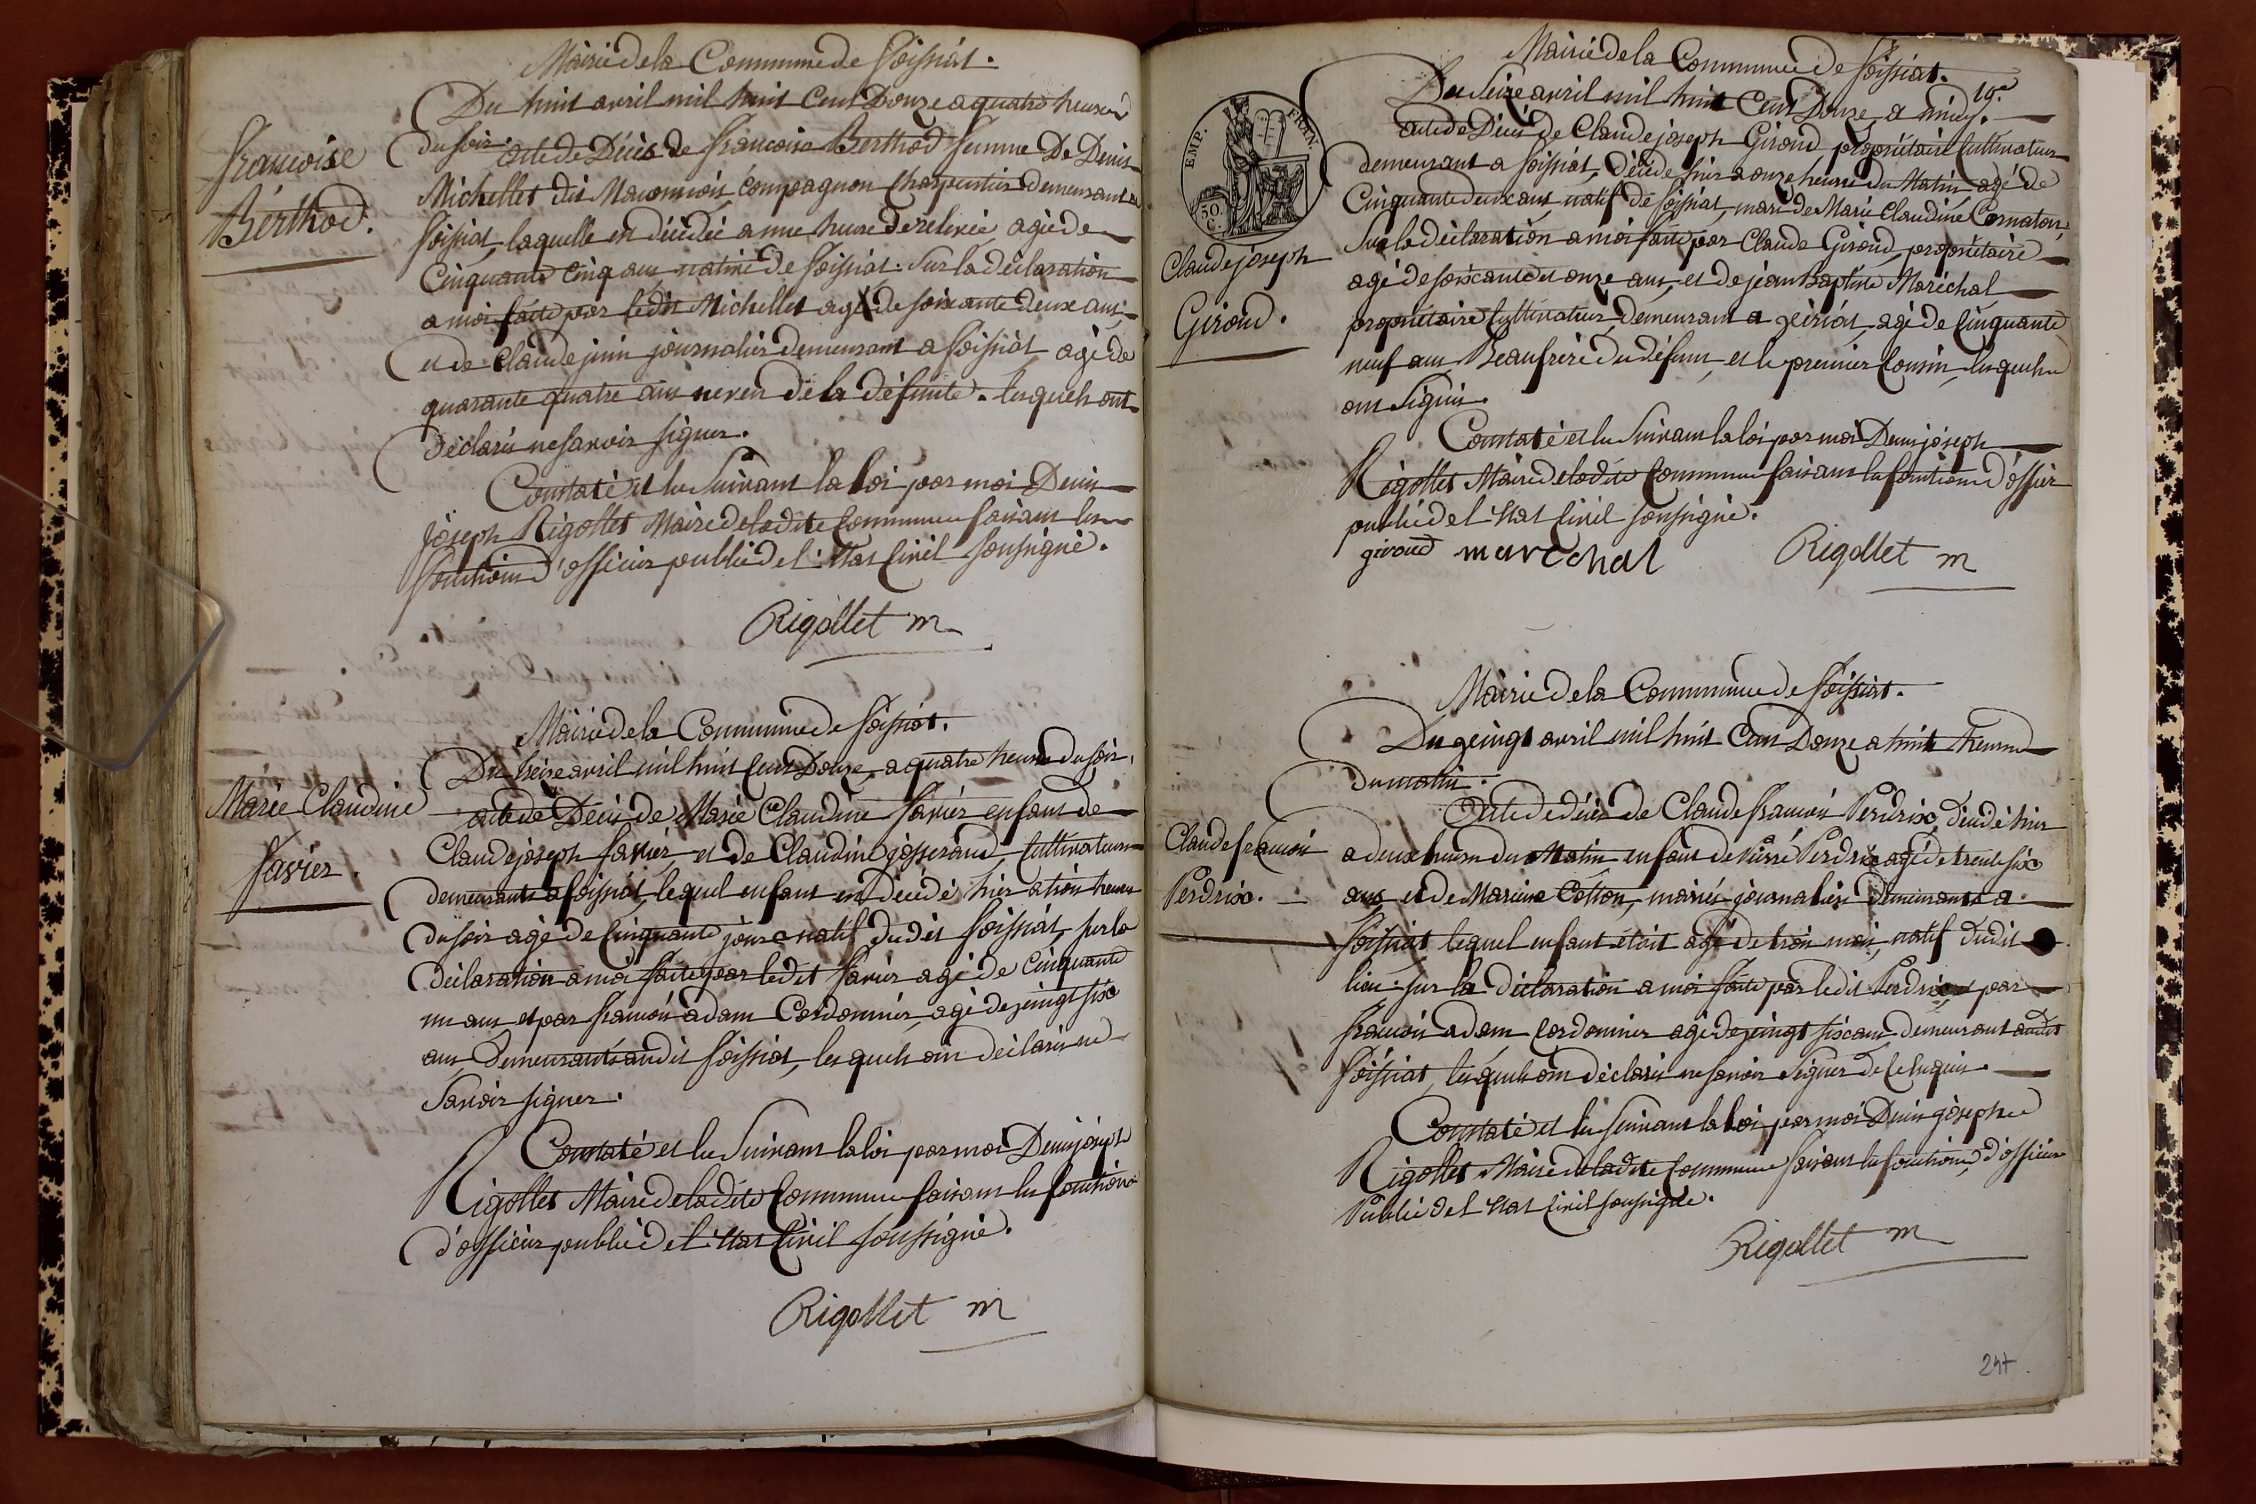 Mairie de la Commune de foissiat.
Du huit avril mil huit Cent Douze a quatre heures
du soir acte de Décès de francoise Berthod femme De Denis
francoise
Berthod.
Michellet dit Maconnois, compagnon Charpentier demeurant a
foissiat, laquelle est décédée a une heure de relevée agée de
Cinquante Cinq ans native de foissiat. Sur la déclaration
a moi faite par ledit Michellet agé de soixante deux ans
et de Claude juin journalier demeurant a foissiat agé de
quarante quatre ans neveu de la défunte. lesquels ont
déclarés ne savoir signer.
Constaté et lu Suivant la loi par moi Denis
joseph Rigollet Maire de ladite Commune faisant les
fonctions d'officier public de l'Etat Civil soussigné.
Rigollet m
Mairie de la Commune de foissiat.
Du treize avril mil huit Cent Douze, a quatre heures du soir,
Marie Claudine
favier.
acte de Décès de Marie Claudine favier enfant de
Claude joseph favier et de Claudine josserand, Cultivateurs
demeurants a foissiat, lequel enfant est décédé hier a trois heures
du soir agé de Cinquante jours natif dudit foissiat, sur la
déclaration a moi faite par ledit favier agé de Cinquante
un ans et par francois adam Cordonnier, agé de veingt six
ans Demeurants audit foissiat, lesquels ont déclarés ne
savoir signer.
Constaté et lu Suivant la loi par moi Denis joseph
Rigollet Maire de ladite Commune faisant les fonctions
d'officier public de l'Etat Civil soussigné.
Rigollet m
Mairie de la Commune de foissiat.
19.e
EMP. FRAN.
50 C.
Du Seize avril mil huit Cent Douze, a midy.
acte de Décès de Claude joseph Giroud propriétaire Cultivateur
demeurant a foissiat, Décédé hier a onze heures du Matin agé de
Cinquante deux ans, natif de foissiat, mari de Marie Claudine Cornaton,
Claude joseph
Giroud.
Sur la déclaration a moi faite par Claude Giroud propriétaire
agé de soixante et onze ans, et de jean Baptiste Maréchal
propriétaire Cultivateur, demeurant a jeiriat, agé de Cinquante
neuf ans Beaufrère du défunt, et le premier Cousin, lesquels
ont Signés.
Constaté et lu Suivant la loi par moi Denis joseph
Rigollet Maire de ladite Commune faisant les fonctions d'officier
public de l'Etat Civil soussigné.
giroud marechal Rigollet m
Mairie de la Commune de foissiat.
Du veingt avril mil huit Cent Douze a huit heures
du matin.
Claude francois
Perdrix.
Acte de décès de Claude francois Perdrix, décédé hier
a deux heures du Matin enfant de Pierre Perdrix agé de trente six
ans et de Marianne Cotton, mariés journaliers Demeurants a
foissiat, lequel enfant étoit agé de trois mois, natif dudit
lieu. sur la déclaration a moi faite par ledit Perdrix et par
francois adam Cordonnier agé de veingt six ans demeurant audit
foissiat, lesquels ont déclarés ne savoir Signer de Ce requis.
Constaté et lu suivant la loi par moi Denis joseph
Rigollet Maire de ladite Commune faisant les fonctions d'officier
Public de l'Etat Civil soussigné.
Rigollet m